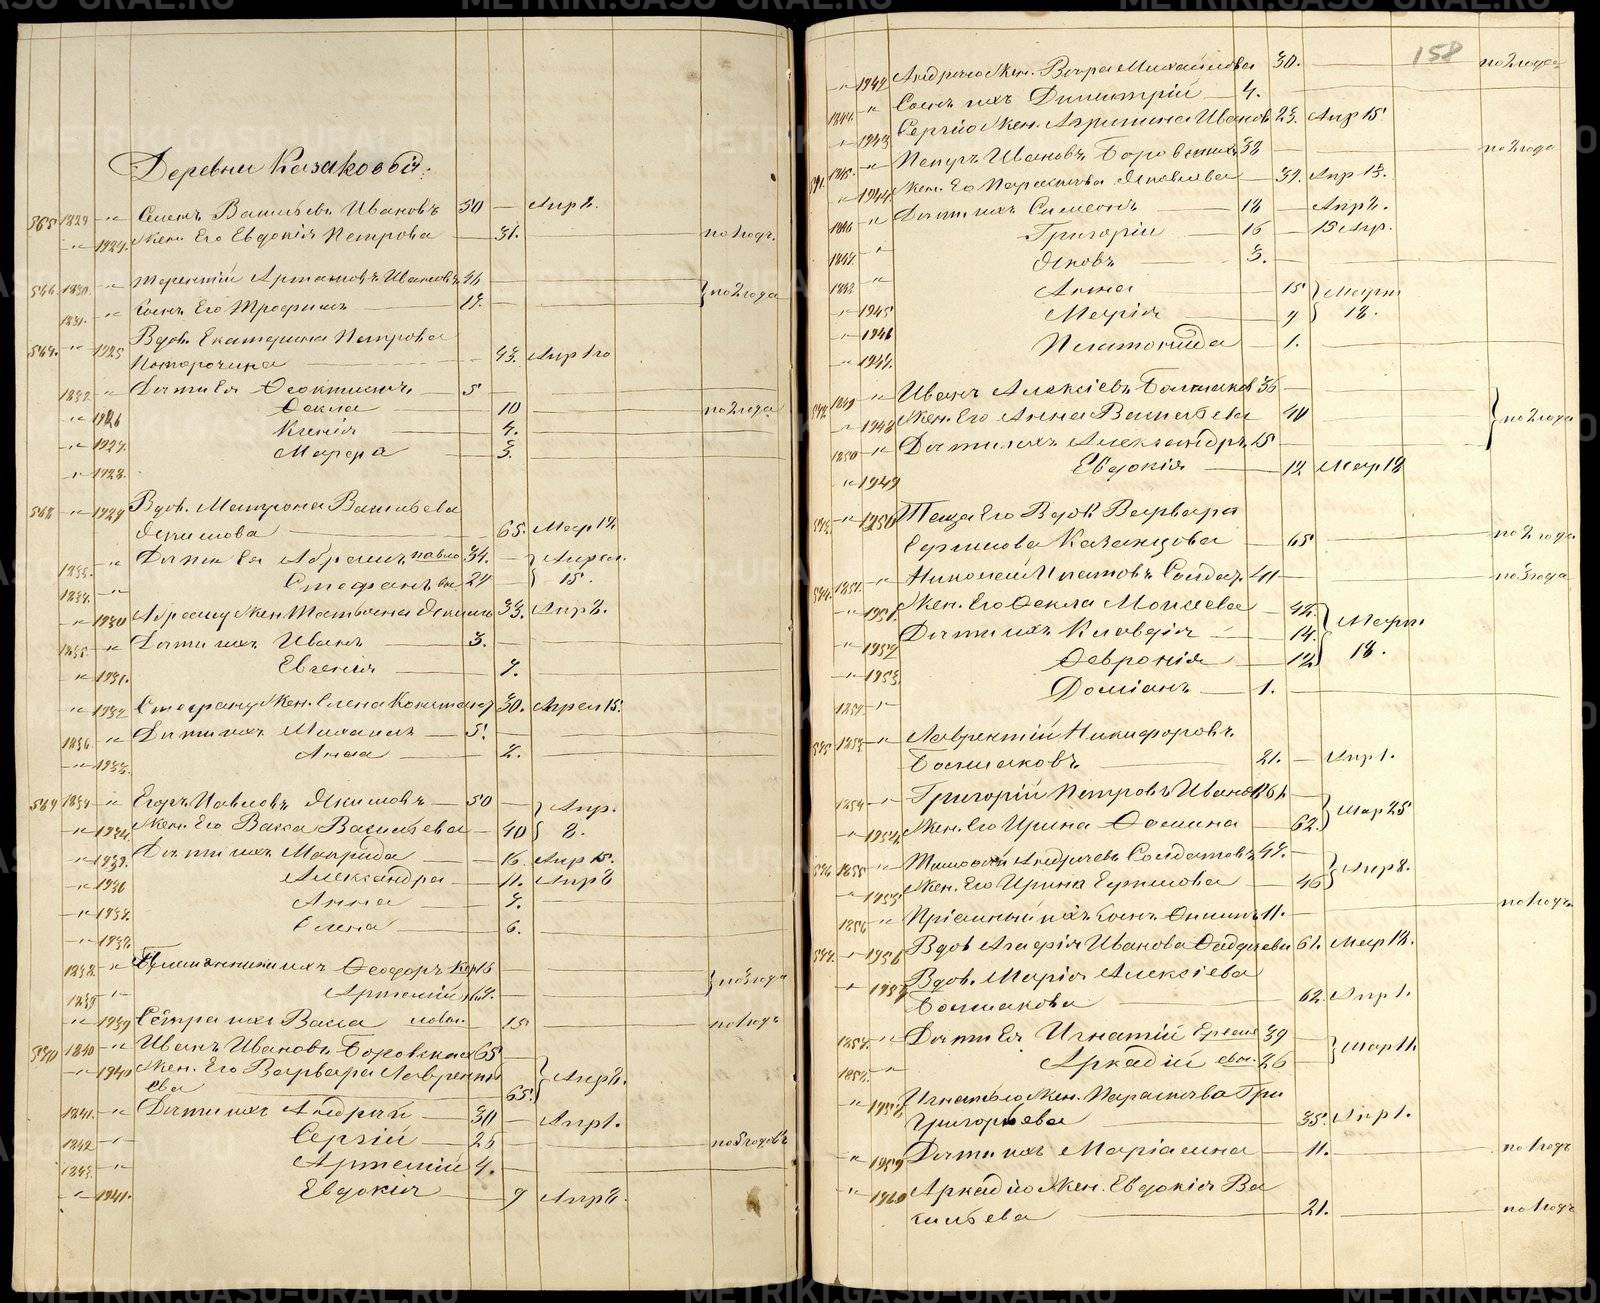 Деревни Казаковой:
565. 1829 -"- Семенъ Васильевъ Ивановъ 50 — Апр 8.
-"- 1924. Жен. Его Евдокія Петрова — 31. по 1 годъ.
566. 1830. -"- Терентій Артамоновъ Ивановъ
1831. -"- Сынъ Его Трофимъ — 17. } по 2 года
-"- 1925 Вдов. Екатерина Петрова
— 43. Апр 1го
1832 -"- Дѣти Ея Феоктистъ 5
-"- 1926 Фекла — 10 по 2 года
-"- 1927. Ксенія — 4.
-"- 1928. Марфа — 3.
568 -"- 1929 Вдов. Матрона Васильева
Якимова — 65. Мар 18.
1833. -"- Дѣти Ея Абрамъ 34. — } Апрел.
1834. -"- Стефанъ 24 — } 15.
-"- 1930 Абраму Жен. Татьяна 33. Апр 8.
1835. -"- Дѣти ихъ Иванъ — 3.
-"- 1931. Евгенія — 7.
-"- 1932 Стефану Жен. Елена 30. Апрел 15.
1836. -"- Дѣти ихъ Михаилъ — 5.
-"- 1933. Анна — 2.
569 1837 -"- Егоръ Павловъ Якимовъ — 50 — } Апр.
-"- 1934. Жен. Его Васса Васильева — 40 } 8.
-"- 1935. Дѣти ихъ Маврида — 16. Апр 15.
-"- 1936 Александра — 11. Апр 8
-"- 1937. Анна — 7.
-"- 1938. Елена — 6.
1838. -"- Племянники ихъ Феодоръ 18
1839 -"- Артемій 17. — } по 3 года
-"- 1939 Сестра ихъ Васса — 15 — по 1 годъ
570 1840 -"- Иванъ Ивановъ Боровскихъ 65
-"- 1940 Жен. Его Варвара Лаврентьева
65. } Апр 8.
1841. -"- Дѣти ихъ Андрей — 30 — Апр 1.
1842 -"- Сергій — 25 — по 5 годовъ
1843. -"- Артемій 4.
-"- 1941. Евдокія — 9 Апр 8.
158
-"- 1942 Андрею Жен. Вѣра Михайлова 30. — по 2 года
1844. -"- Сынъ ихъ Димитрій — 4.
-"- 1943 Сергію Жен. Агрипина Иванов 23. Апр 15
571. 1845. -"- Петръ Ивановъ Боровскихъ 38 — по 2 года
-"- 1944 Жен. Его Парасковья Яковлева — 37. Апр 15.
1846 -"- Дѣти ихъ Симеонъ — 18 — Апр 8.
1847. -"- Григорій — 16 — 15 Апр.
1848 -"- Яковъ — 3.
-"- 1945 Анна — 15 } Март
-"- 1946 Марія — 9 } 18.
-"- 1947. — 1.
572 1849 -"- Иванъ Алексіевъ Болшаковъ 36 —
-"- 1948 Жен. Его Анна Васильева 40 } по 2 года
1850 -"- Дѣти ихъ Александръ 15 —
-"- 1949 Евдокія — 12 Мар 18
573. -"- 1950 Теща Его Вдов Варвара
Ермилова Казанцова — 65 — по 2 года
574. 1851. -"- Николай Игнатовъ Солдат. 41 — по 3 года
-"- 1951. Жен. Его Фекла Моисеева — 42. } Март
-"- 1952 Дѣти ихъ Клавдія — 14. } 18.
-"- 1953. Февронія — 12
1852. -"- Доміанъ — 1. —
575 1853 -"- Лаврентій Никифоровъ
Болшаковъ — 21. — Апр 1.
1854 -"- Григорій Петровъ Ивановъ 61 — } Мар 25
-"- 1954. Жен. Его Ирина Фомина — 62. }
576 1855 -"- Тимофей Андреевъ Солдатовъ 47. — } Апр 8.
-"- 1955 Жен. Его Ирина Ермилова — 46 }
1856. -"- Пріемный ихъ сынъ 11. — по 1 годъ
577. -"- 1956 Вдов Агафія Иванова 61. Мар 18.
-"- 1957 Вдов. Марія Алексіева
Болшакова — 62. Апр 1.
1857. -"- Дѣти Ея Игнатій 39 — } Мар 11.
1858. -"- Аркадій 26 — }
-"- 1958 Игнатію Жен. Парасковья Гри
григорьева — 35. Апр 1.
-"- 1959 Дѣти ихъ Маріамна — 11. — по 1 годъ
-"- 1960 Аркадію Жен. Евдокія Ва
сильева — 21. — по 1 годъ
METRIKI.GASO-URAL.RU